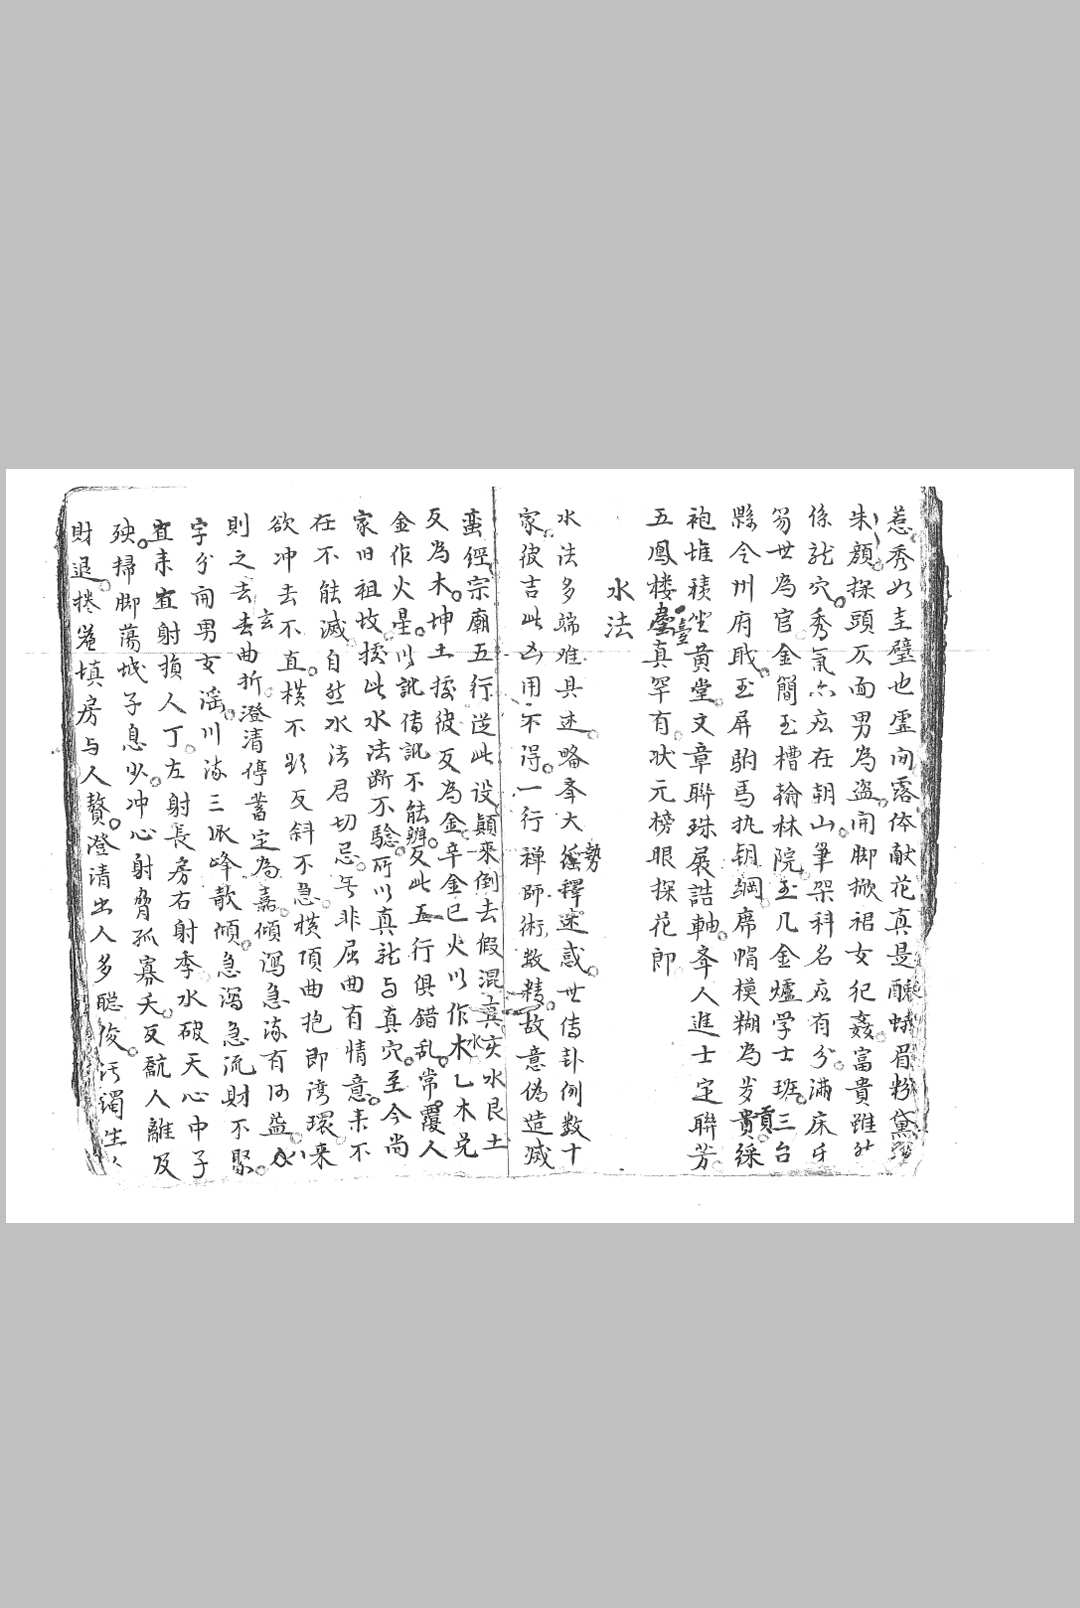 惹秀如圭璧也虛向露体献花真是醜蛾眉粉黛
朱顏探頭仄面男為盜開脚掀裙女犯姦富貴雖
係龍穴秀氣亦应在朝山筆架科名应有分滿床牙
笏世為官金簡玉槽翰林院玉几金爐学士班三台
縣令州府戝玉屏駙馬执钥綱席帽模糊為岁貴貢綵
袍堆積坐黃堂文章聯珠展誥軸夆人進士定聯芳
五鳳楼臺真罕有状元榜眼探花郎
水法
水法多端难具述略夆大勢釋迷惑世俗卦例数十
家彼吉此凶用不得一行禅師術数精故意偽造滅
蛮經宗廟五行逆此设顛來倒去假混真亥水艮土
反為木坤土接彼反為金辛金巳火以作木水乙木兌
金作火星以訛傳訛不能辨反此五行俱錯乱常覆人
家旧祖坟接此水法断不驗所以真龍与真穴至今尚
在不能滅自然水法君切忌無非屈曲有情意來不
欲冲去不直横不形反斜不急横項曲抱即湾環来
則之玄去曲折澄清停蓄定為嘉傾瀉急流有何益八
字分開男女滛川流三派峰散傾急瀉急流財不聚
直来直射損人丁左射長房右射季水破天心中子
殃掃脚蕩城子息少冲心射脅孤寡夭反飜人離及
財退捲簾填房与人贅澄清出人多聪俊污濁生